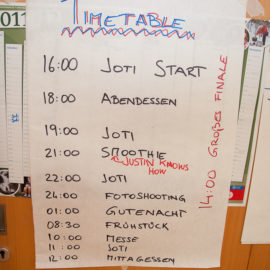 TIMETABLE
16:00 JOTI START
18:00 ABENDESSEN
19:00 JOTI
21:00 SMOOTHIE
JUSTIN KNOWS
HOW
22:00 JOTI
24:00 FOTOSHOOTING
01:00 GUTENACHT
08:30 FRÜHSTÜCK
10:00 MESSE
11:00 JOTI
12:00 MITTAGESSEN
14:00 GROßES FINALE
011